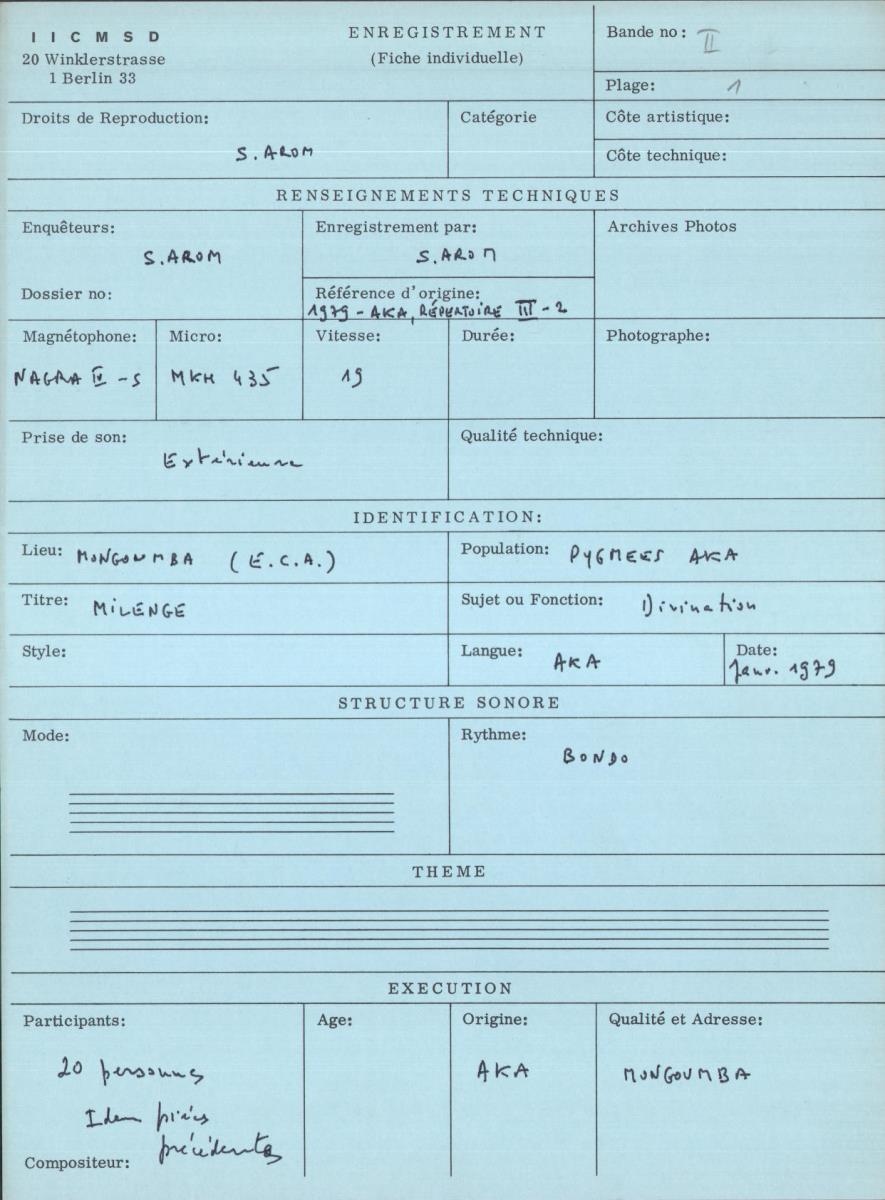 I I C M S D
20 Winklerstrasse
1 Berlin 33
ENREGISTREMENT
(Fiche individuelle)
Bande no: II
Plage: 1
Droits de Reproduction:
S. AROM
Catégorie
Côte artistique:
Côte technique:
RENSEIGNEMENTS TECHNIQUES
Enquêteurs:
S. AROM
Dossier no:
Enregistrement par:
S. AROM
Référence d'origine:
1979 - AKA, RÉPERTOIRE III - 2
Archives Photos
Magnétophone:
NAGRA IV - S
Micro:
MKH 435
Vitesse:
19
Durée:
Photographe:
Prise de son:
Extérieure
Qualité technique:
IDENTIFICATION:
Lieu: MONGOUMBA (E.C.A.)
Population: PYGMEES AKA
Titre: MILENGE
Sujet ou Fonction: Divination
Style:
Langue: AKA
Date:
Janv. 1979
STRUCTURE SONORE
Mode:
Rythme:
BONDO
THEME
EXECUTION
Participants:
20 personnes
Idem pièces
précédentes
Compositeur:
Age:
Origine:
AKA
Qualité et Adresse:
MONGOUMBA